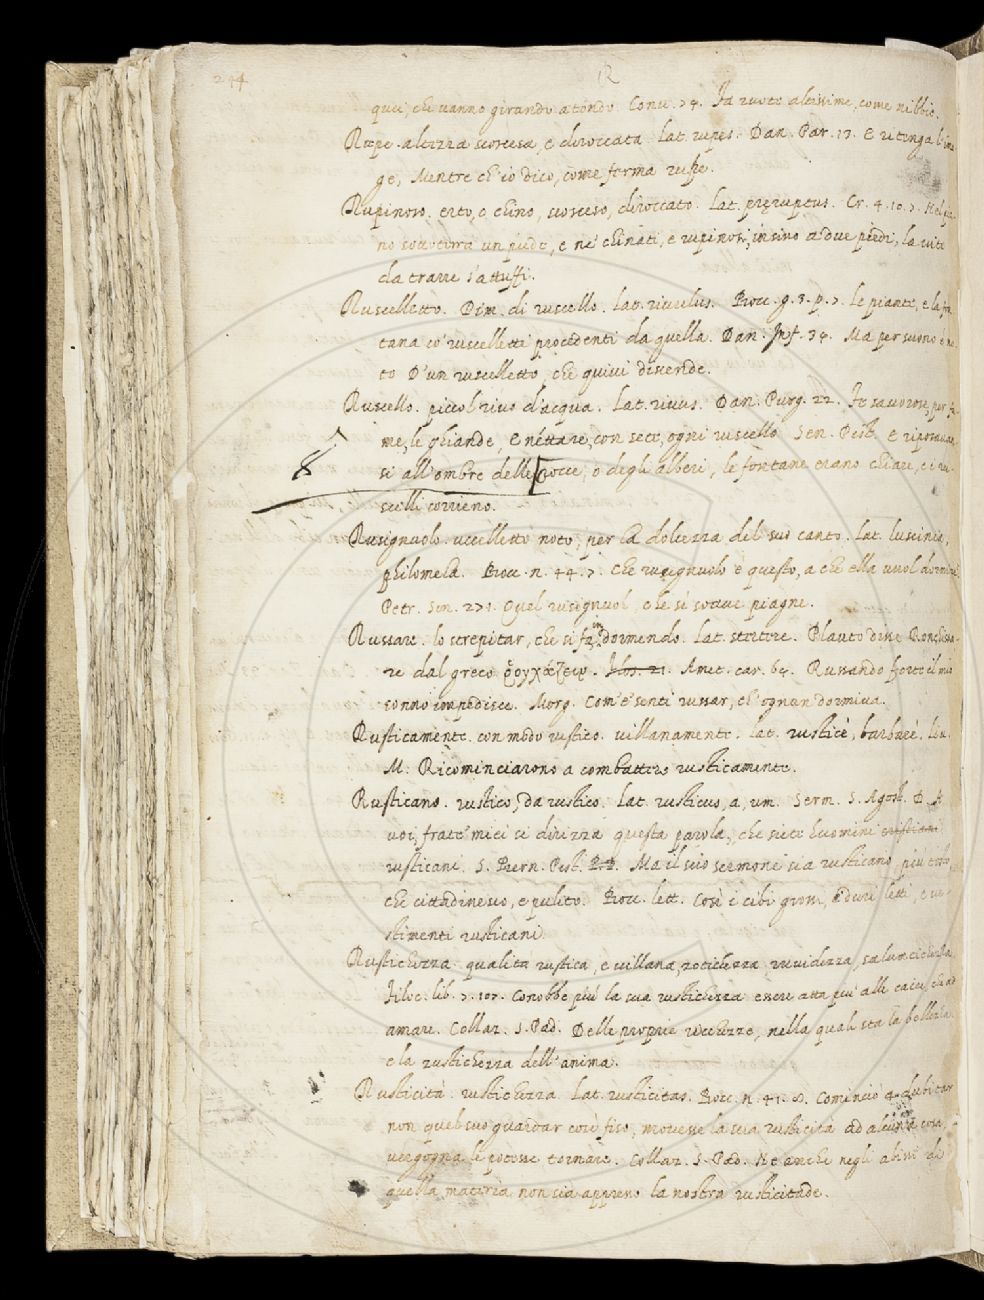 244
R
que, che vanno girando a tondo. Conv. 74. Fa ruote altissime, come nibbio.
Rupe. altezza scoscesa, e diroccata. Lat. rupes. Dan. Par. 17. E ritenga l'
ge, Mentre ch'io dico, come ferma rupe.
Rupinoso. erto, o chino, scosceso, diroccato. Lat. pręruptus. Cr. 4. 10. 7. Nel pia-
no sotto terra un piede, e ne' chinati, e rupinosi, insino a due piedi, la vite
da trarre s'attuffi.
Ruscelletto. Dim. di ruscello. Lat. rivulus. Bocc. g. 3. p. 7. Le piante, e la fon
tana co' ruscelletti procedenti da quella. Dan. Inf. 34. Ma per suono è no
to D'un ruscelletto, che quivi discende.
Ruscello. piccol rivo d'acqua. Lat. rivus. Dan. Purg. 22. Fe savorose, per fa
me, le ghiande, E néttare, con sete, ogni ruscello. Sen. Pist. E riposavan
si all'ombre delle rocce, o degli alberi, le fontane erano chiare, e i ru-
scelli corrieno.
8
Rusignuolo. uccelletto noto, per la dolcezza del suo canto. Lat. luscinia,
philomela. Bocc. n. 44. 7. Che rusignuolo è questo, a che ella vuol dormire
Petr. Son. 271. Quel rusignuol, che sì soave piagne.
Russare. lo strepitar, che si fa in dormendo. Lat. stertere. Plauto disse Ronchissa-
re dal greco ῥογχάζειν. Filos. 21. Amet. car. 64. Russando forte il mio
sonno impedisce. Morg. Com'e' sentì russar, ch'ognun dormiva.
Rusticamente. con modo rustico. villanamente. Lat. rusticè, barbarè. Liv.
M: Ricominciarono a combattere rusticamente.
Rusticano. rustico, da rustico. Lat. rusticus, a, um. Serm. S. Agost. D. A
voi, frate' miei si dirizza questa parola, che siete huomini cristiani
rusticani. S. Bern. Pist. P.P. Ma il suo sermone sia rusticano più tosto,
che cittadinesco, e pulito. Bocc. lett. Così i cibi grossi, e duri letti, e ve
stimenti rusticani.
Rustichezza. qualità rustica, e villana, zotichezza ruvidezza, salvatichezza.
Filoc. lib. 7. 107. Conobbe più la sua rustichezza essere atta più alle cacce, che ad
amare. Collaz. S. Pad. Delle proprie ricchezze, nella quali sta la bellezza
e la rustichezza dell'anima.
Rusticità. rustichezza. Lat. rusticitas. Bocc. n. 41. 8. Cominciò a dubitar
non quel suo guardar così fiso, movesse la sua rusticità ad alcuna cosa,
vergogna le potesse tornare. Collaz. S. Pad. Né anche negli abissi de
quella materia non sia appreso la nostra rusticitade.